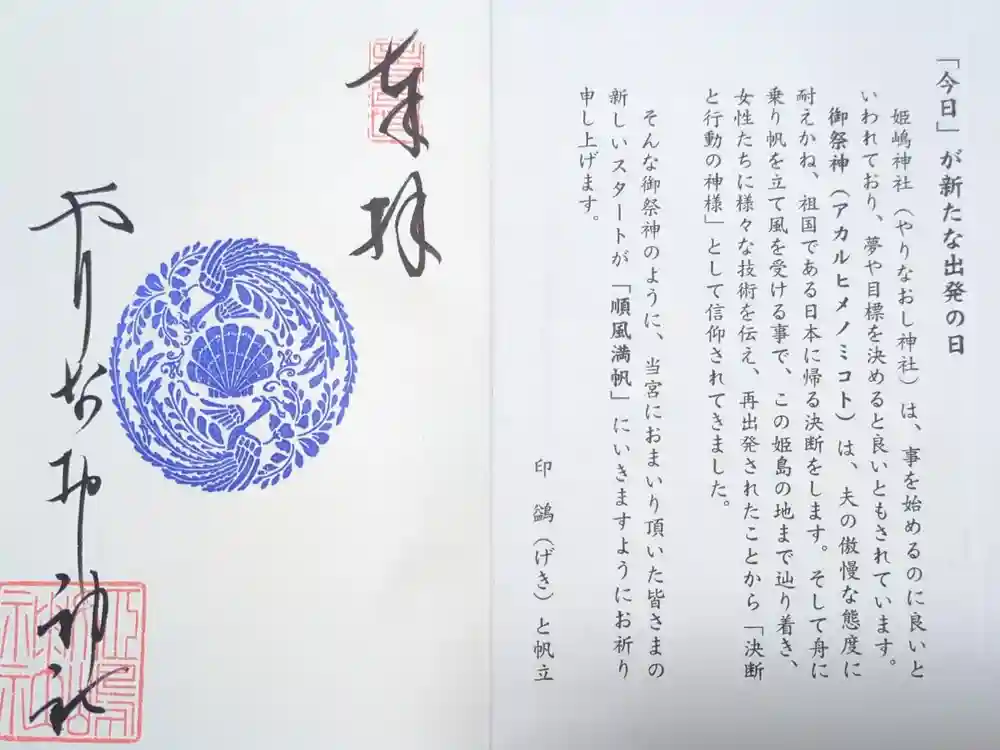 「今日」が新たな出発の日
姫嶋神社（やりなおし神社）は、事を始めるのに良いと
いわれており、夢や目標を決めると良いともされています。
御祭神（アカルヒメノミコト）は、夫の傲慢な態度に
耐えかね、祖国である日本に帰る決断をします。そして舟に
乗り帆を立て風を受ける事で、この姫島の地まで辿り着き、
女性たちに様々な技術を伝え、再出発されたことから「決断
と行動の神様」として信仰されてきました。
そんな御祭神のように、当宮におまいり頂いた皆さまの
新しいスタートが「順風満帆」にいきますようにお祈り
申し上げます。
印 鷁（げき）と帆立
奉拝
やりなおし神社
姫嶋神社